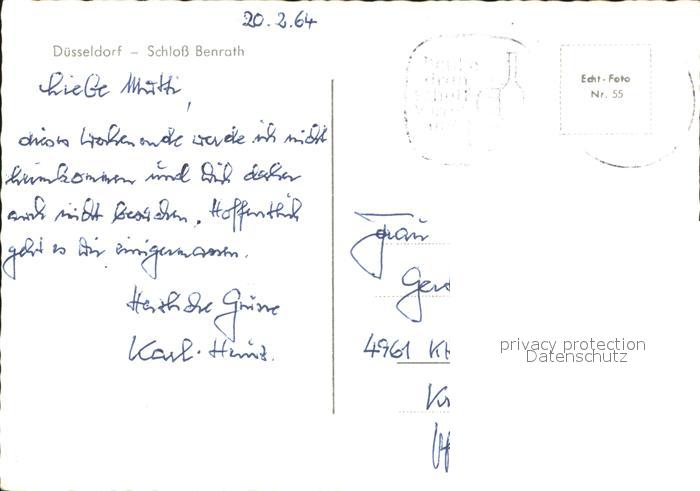 20.2.64
Düsseldorf – Schloß Benrath
Liebe Mutti,
dieses Wochenende werde ich nicht
heimkommen und Dich daher
auch nicht besuchen. Hoffentlich
geht es Dir einigermassen.
Herzliche Grüsse
Karl-Heinz.
Echt-Foto
Nr. 55
Frau
4961
privacy protection
Datenschutz